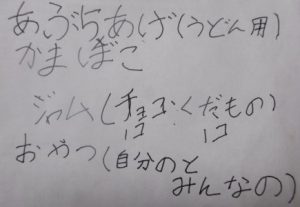 あぶらあげ(うどん用)
かまぼこ
ジャム(チョコ1コ くだもの1コ)
おやつ(自分のと
みんなの)